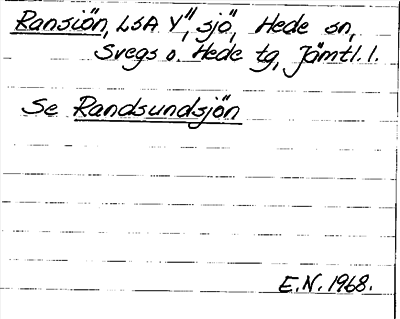 Ransiön, LSA Y", sjö", Hede sn,
Svegs o. Hede tg, Jämtl. l.
Se Randsundsjön
E.N. 1968.